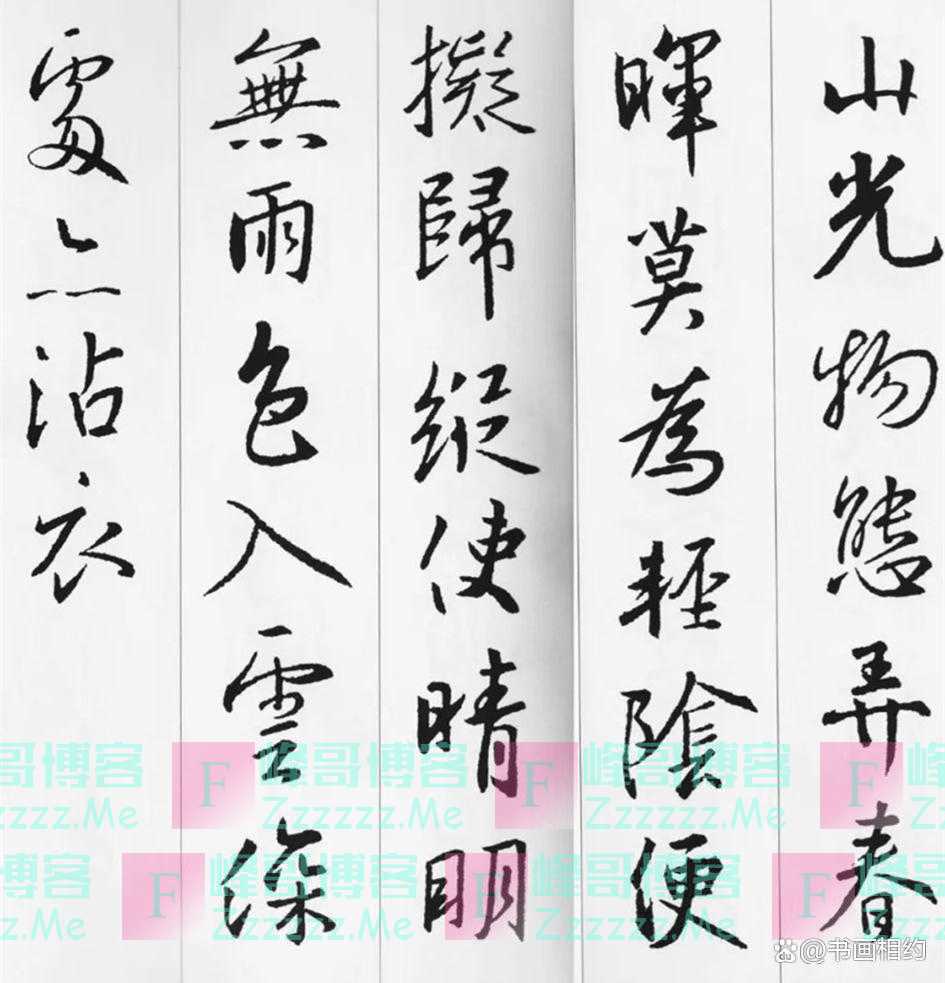 山光物態弄春
暉莫為輕陰便
擬歸縱使晴明
無雨色入雲深
處亦沾衣
哥博客 F 峰哥博客 F 峰哥博客 F
Zzzzzz.Me Zzzzzz.Me Zzzzzz.Me
峰哥博客 F 峰哥博客 F 峰哥博客 F
Zzzzzz.Me Zzzzzz.Me Zzzzzz.Me
@书画相约